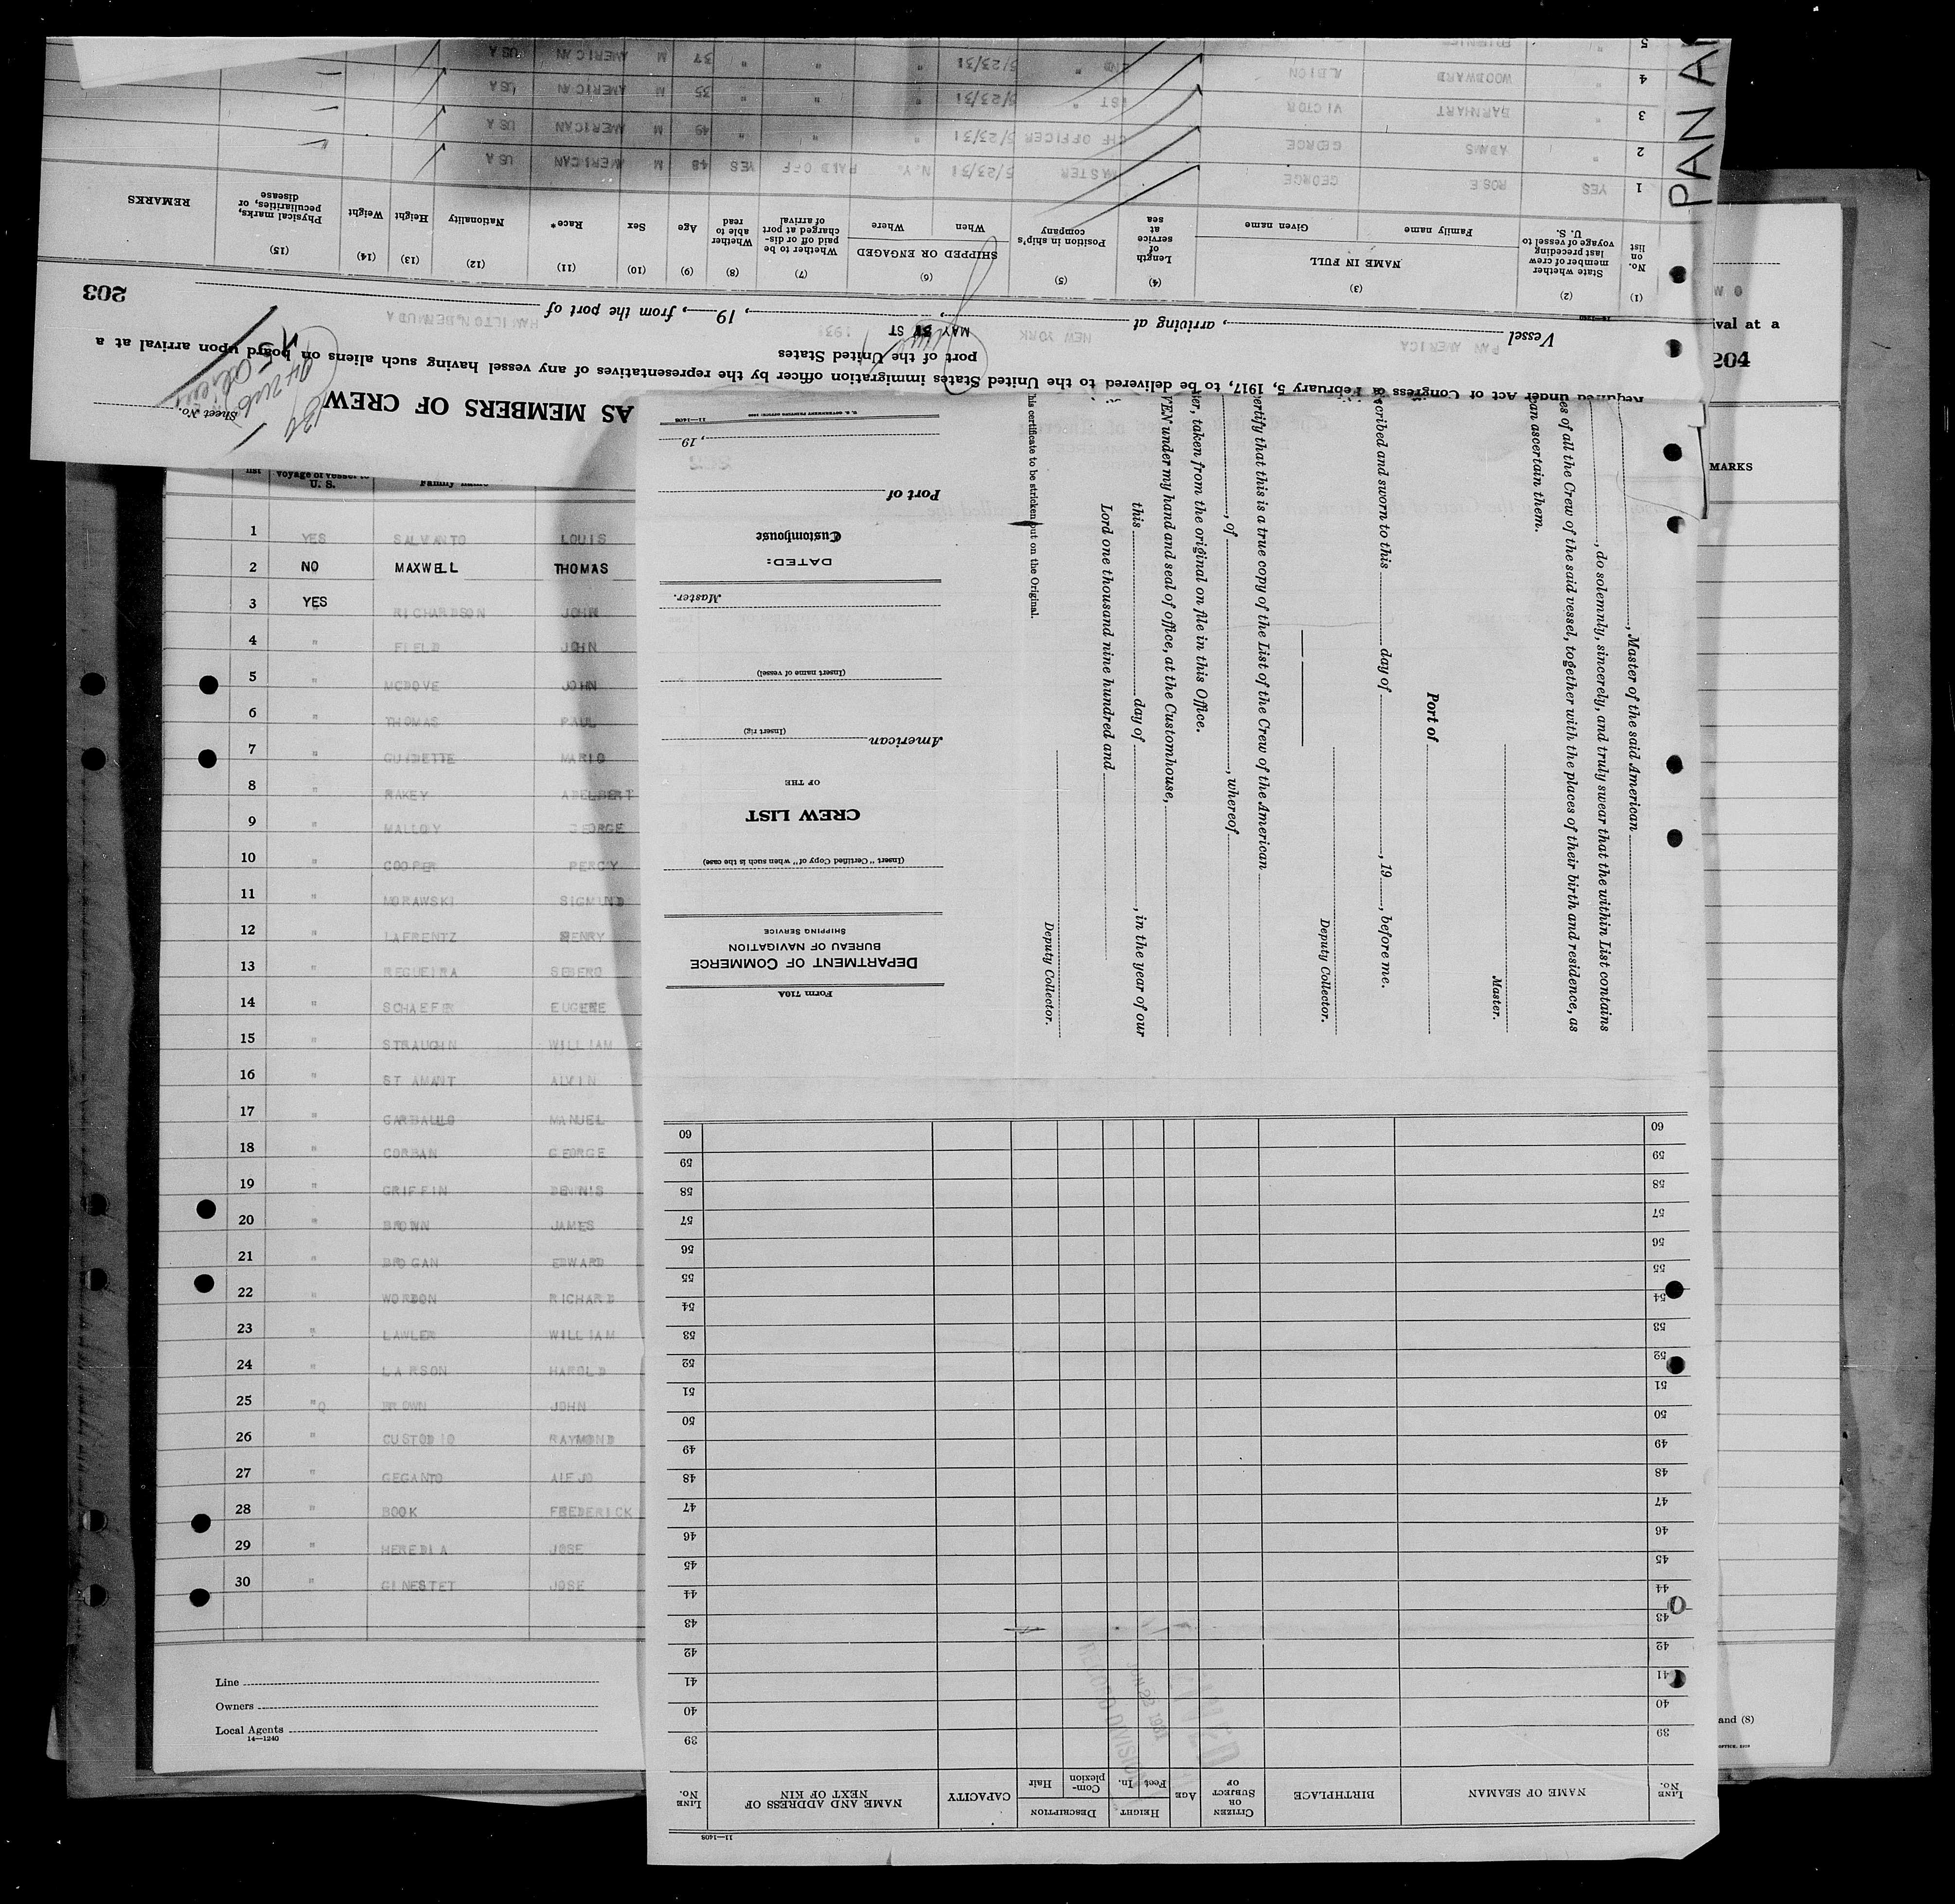 PAN
AS MEMBERS OF CREW
Sheet No.
203
Required under Act of Congress of February 5, 1917, to be delivered to the United States immigration officer by the representatives of any vessel having such aliens on board upon arrival at a
port of the United States
Vessel PAN AMERICA, arriving at NEW YORK, MAY ST, 19, from the port of HAMILTON BERMUDA
(1) No. on list
(2) State whether member of crew last preceding voyage of vessel to U. S.
(3) NAME IN FULL
Family name
Given name
(4) Length of service at sea
(5) Position in ship's company
(6) SHIPPED OR ENGAGED
When
Where
(7) Whether to be paid off or discharged at port of arrival
(8) Whether able to read
(9) Age
(10) Sex
(11) Race*
(12) Nationality
(13) Height
(14) Weight
(15) Physical marks, peculiarities, or disease
REMARKS
1 YES ROSE GEORGE MASTER 5/23/31 N.Y. PAID OFF YES 48 M AMERICAN USA
2 " ADAMS GEORGE CHF OFFICER 5/23/31 " " " 49 M AMERICAN USA
3 " BARNHART VICTOR 1ST " 5/23/31 " " " 35 M AMERICAN USA
4 " WOODWARD ALBION 2ND " 5/23/31 " " " 37 M AMERICAN USA
5
204
ival at a
MARKS
and (8)
list
voyage of vessel to U. S.
Family name
1 YES SALVANTO LOUIS
2 NO MAXWELL THOMAS
3 YES RICHARDSON JOHN
4 " FIELD JOHN
5 " MCDOVE JOHN
6 " THOMAS PAUL
7 " GUIDETTE MARIO
8 " RAKEY ADELBERT
9 " MALLOY GEORGE
10 " COOPER PERCY
11 " MORAWSKI SIGMUND
12 " LAFRENTZ HENRY
13 " REGUEIRA SEBERO
14 " SCHAEFER EUGENE
15 " STRAUGHN WILLIAM
16 " ST AMANT ALVIN
17 " CARBALLO MANUEL
18 " CORBAN GEORGE
19 " GRIFFIN DENNIS
20 " BROWN JAMES
21 " BROGAN EDWARD
22 " WORDON RICHARD
23 " LAWLER WILLIAM
24 " LARSON HAROLD
25 " BROWN JOHN
26 " CUSTODIO RAYMOND
27 " GEGANTO ALEJO
28 " BOOK FREDERICK
29 " HEREDIA JOSE
30 " GINESTET JOSE
Line
Owners
Local Agents
14—1240
Form 710A
DEPARTMENT OF COMMERCE
BUREAU OF NAVIGATION
SHIPPING SERVICE
(Insert "Certified Copy of" when such is the case)
CREW LIST
OF THE
American
(Insert rig)
(Insert name of vessel)
Master.
DATED:
Customhouse
Port of
, 19
11—1408
, Master of the said American
, do solemnly, sincerely, and truly swear that the within List contains
es of all the Crew of the said vessel, together with the places of their birth and residence, as
can ascertain them.
Master.
Port of
cribed and sworn to this day of , 19 , before me.
Deputy Collector.
ertify that this is a true copy of the List of the Crew of the American
, of , whereof
er, taken from the original on file in this Office.
VEN under my hand and seal of office, at the Customhouse,
this day of , in the year of our
Lord one thousand nine hundred and
Deputy Collector.
his certificate to be stricken out on the Original.
11—1408
LINE No.
NAME OF SEAMAN
BIRTHPLACE
CITIZEN OR SUBJECT OF
AGE
HEIGHT
Feet
In.
DESCRIPTION
Complexion
Hair
CAPACITY
NAME AND ADDRESS OF NEXT OF KIN
LINE No.
39 39
40 40
41 41
42 42
43 43
44 44
45 45
46 46
47 47
48 48
49 49
50 50
51 51
52 52
53 53
54 54
55 55
56 56
57 57
58 58
59 59
60 60
1931
DIVISION